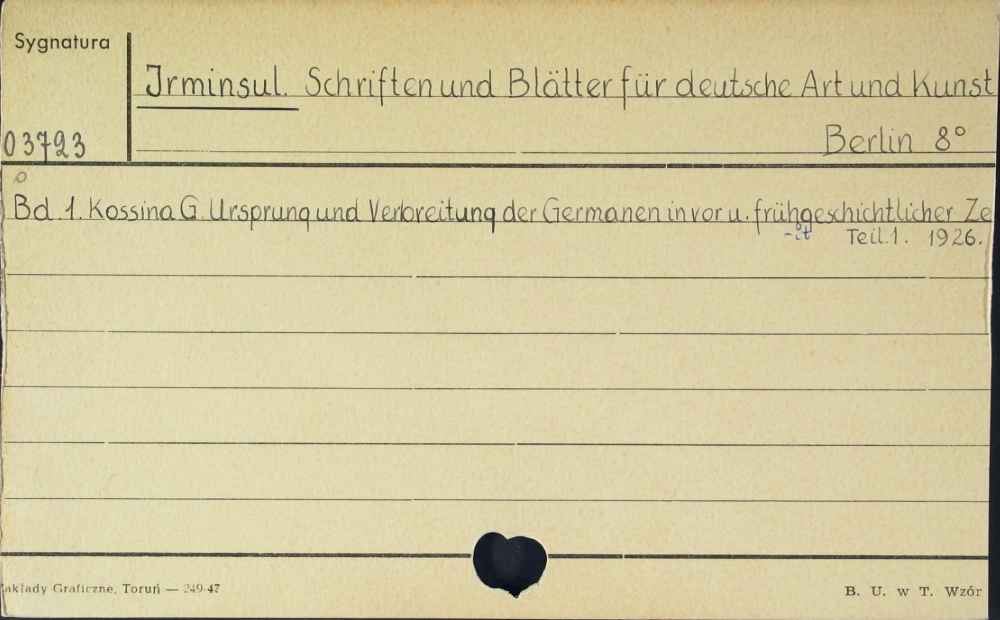 Sygnatura
Irminsul. Schriften und Blätter für deutsche Art und Kunst
03723
Berlin 8°
Bd. 1. Kossina G. Ursprung und Verbreitung der Germanen in vor u. frühgeschichtlicher Ze
-it Teil.1. 1926.
akłady Graficzne, Toruń — 249-47
B. U. w T. Wzór